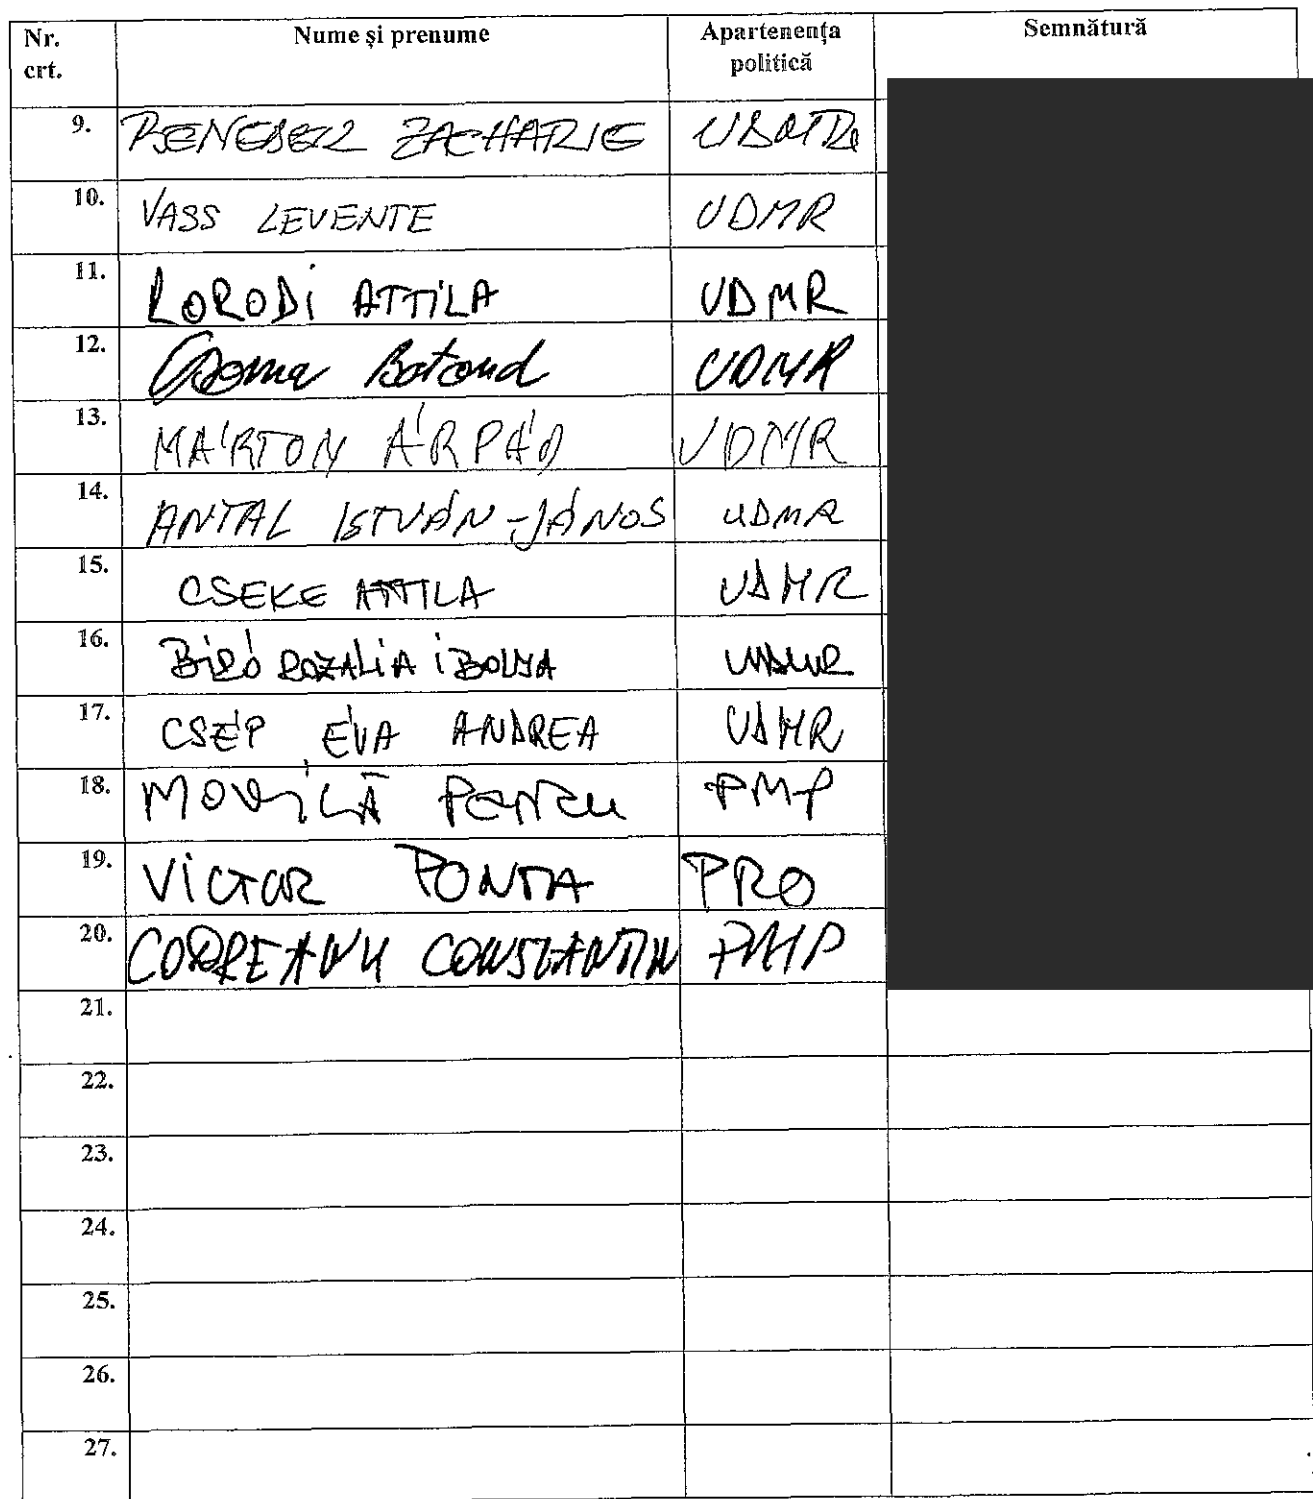 Nr. crt. Nume și prenume Apartenența politică Semnătură
9. BENEDEK ZACHARIE UDMR
10. VASS LEVENTE UDMR
11. KORODI ATTILA UDMR
12. Csoma Botond UDMR
13. MÁRTON ÁRPÁD UDMR
14. ANTAL ISTVÁN-JÁNOS UDMR
15. CSEKE ATTILA UDMR
16. BIRÓ ROZALIA IBOLYA UDMR
17. CSÉP ÉVA ANDREA UDMR
18. MOVILĂ PETRU PMP
19. VICTOR PONTA PRO
20. CODREANU CONSTANTIN PMP
21.
22.
23.
24.
25.
26.
27.